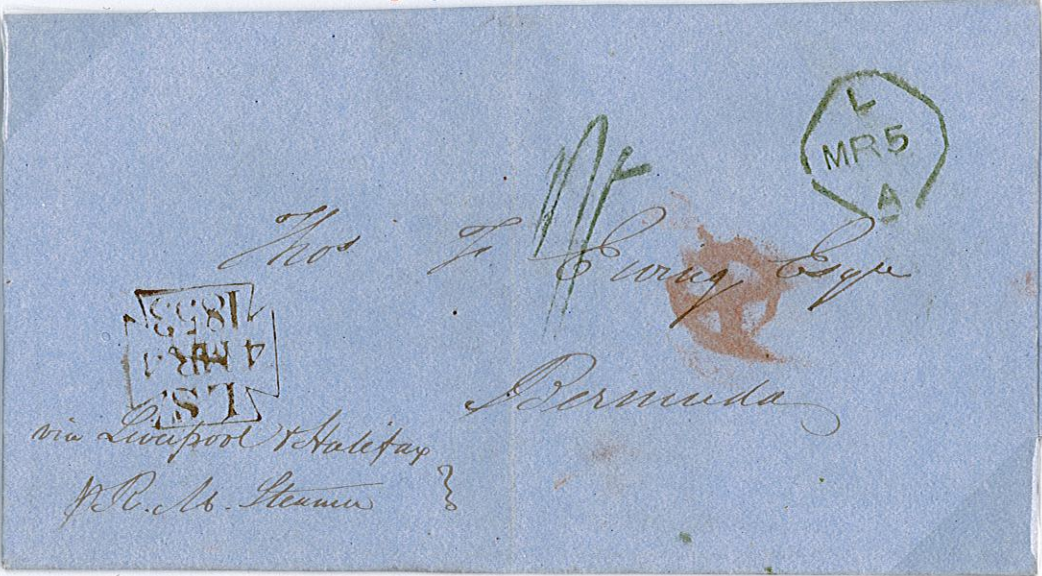 L
MR 5
A
1/-
Thos F Ewing Esqre
Bermuda
LS
4 MR 4
1853
via Liverpool & Halifax
p R. M. Steamer